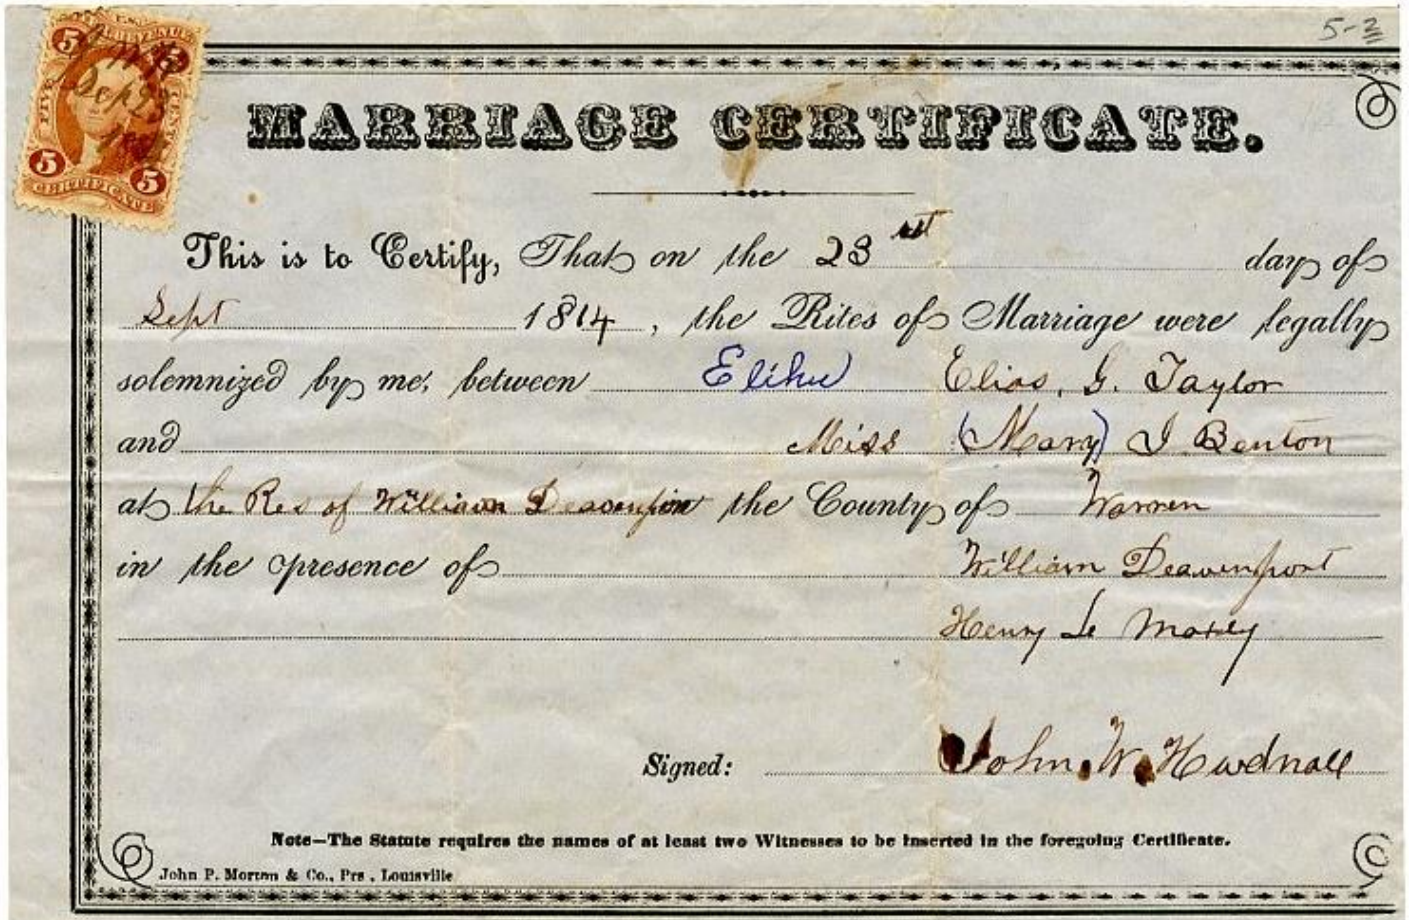 5-2
U.S.
5 CERTIFICATE 5
FIVE CENTS
J W H
Sept 23
5 5
CERTIFICATE
MARRIAGE CERTIFICATE.
This is to Certify, That on the 23 st day of
Sept 1814, the Rites of Marriage were legally
solemnized by me, between Elihu Elias, G. Taylor
and Miss (Mary) J Benton
at the Res of William Deavenport in the County of Warren
in the presence of William Deavenport
Henry Le
Signed: John W. Hudnall
Note—The Statute requires the names of at least two Witnesses to be inserted in the foregoing Certificate.
John P. Morton & Co., Prs, Louisville